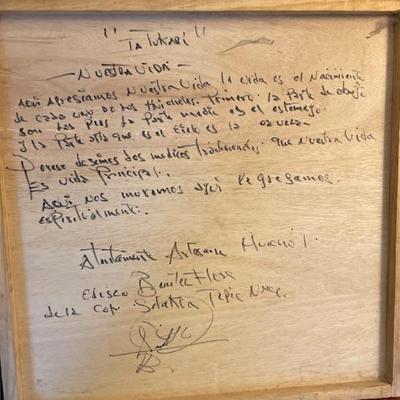 "TATUKARI"
- NUESTRA VIDA -
AQUI APRESIAMOS NUESTRA VIDA la vida es el Nacimiento
de cada uno de los Primero la Parte de abajo
son los Pies la Parte media es el estomago
y la Parte que es el es la caveza
Por eso desimos los medicos Tradicionales. que Nuestra Vida
Es vida Principal.
AQUI Nos muramos aqui Regresamos.
espiritualmente.
Atentamente Artesano Huichol
Eliseo Benitez Flores
de la Tepic Nay.